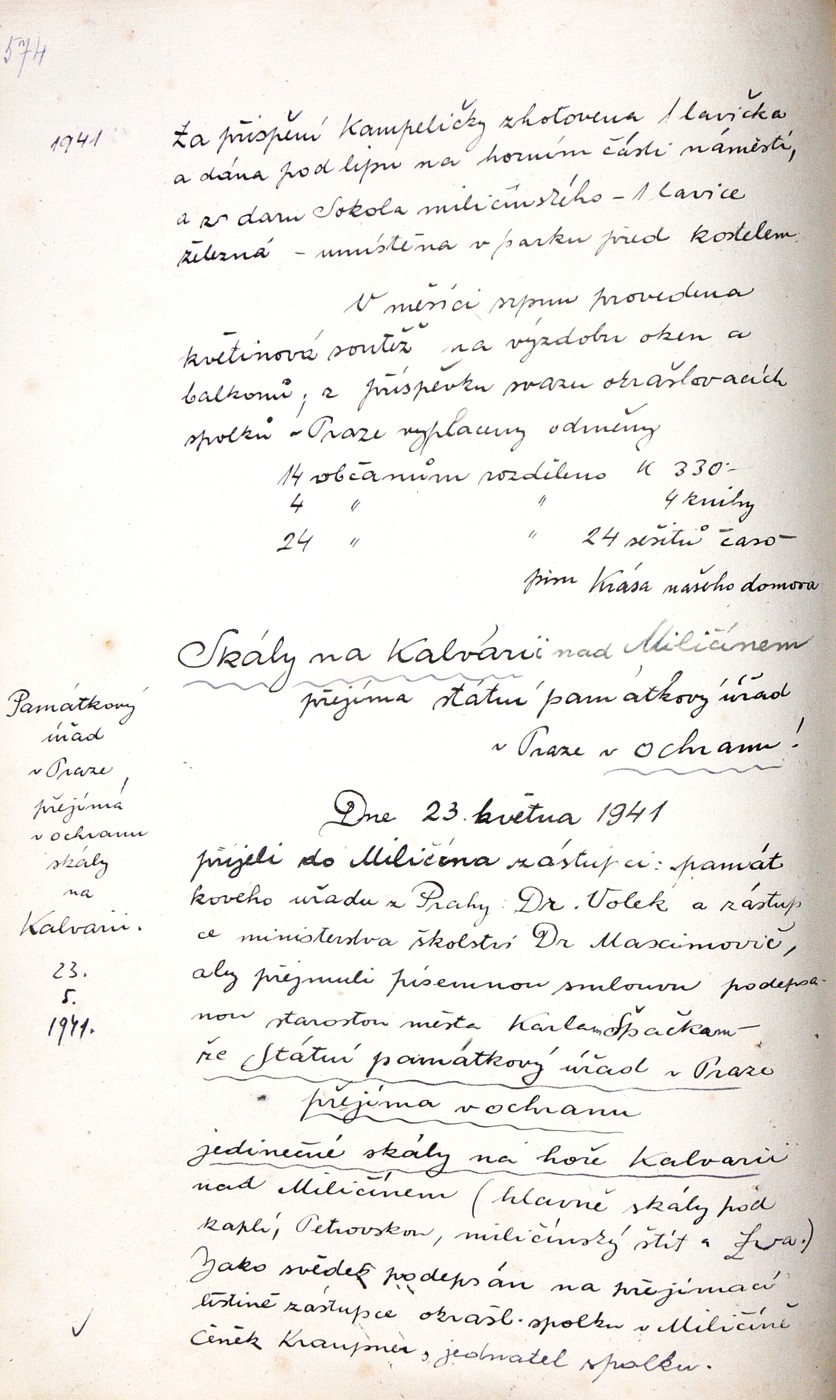 574
1941
Za přispění Kampeličky zhotovena 1 lavička
a dána pod lipu na horním části náměstí,
a z daru Sokola miličínského - 1 lavice
železná - umístěna v parku před kostelem.
V měsíci srpnu provedena
květinová soutěž na výzdobu oken a
balkonů; z příspěvku svazu okrašlovacích
spolků v Praze vyplaceny odměny
14 občanům rozděleno K 330·-
4 " " 4 knihy
24 " " 24 sešitů časo-
pisu Krása našeho domova
Skály na Kalvárii nad Miličínem
přejímá státní památkový úřad
v Praze v ochranu!
Památkový
úřad
v Praze
přejímá
v ochranu
skály
na
Kalvarii.
23.
5.
1941.
Dne 23. května 1941
přijeli do Miličína zástupci: památ
kového úřadu z Prahy: Dr. Volek a zástup
ce ministerstva školství Dr Maximovič,
aby přejmuli písemnou smlouvu podepsa-
nou starostou města Karlem Špačkem -
že Státní památkový úřad v Praze
přejímá v ochranu
jedinečné skály na hoře Kalvarii
nad Miličínem (hlavně skály pod
kaplí, Petrovskou, miličínský štít a
Jako svědek podepsán na přejímací
listině zástupce okrašl. spolku v Miličíně
Čeněk Kraupner, jednatel spolku.